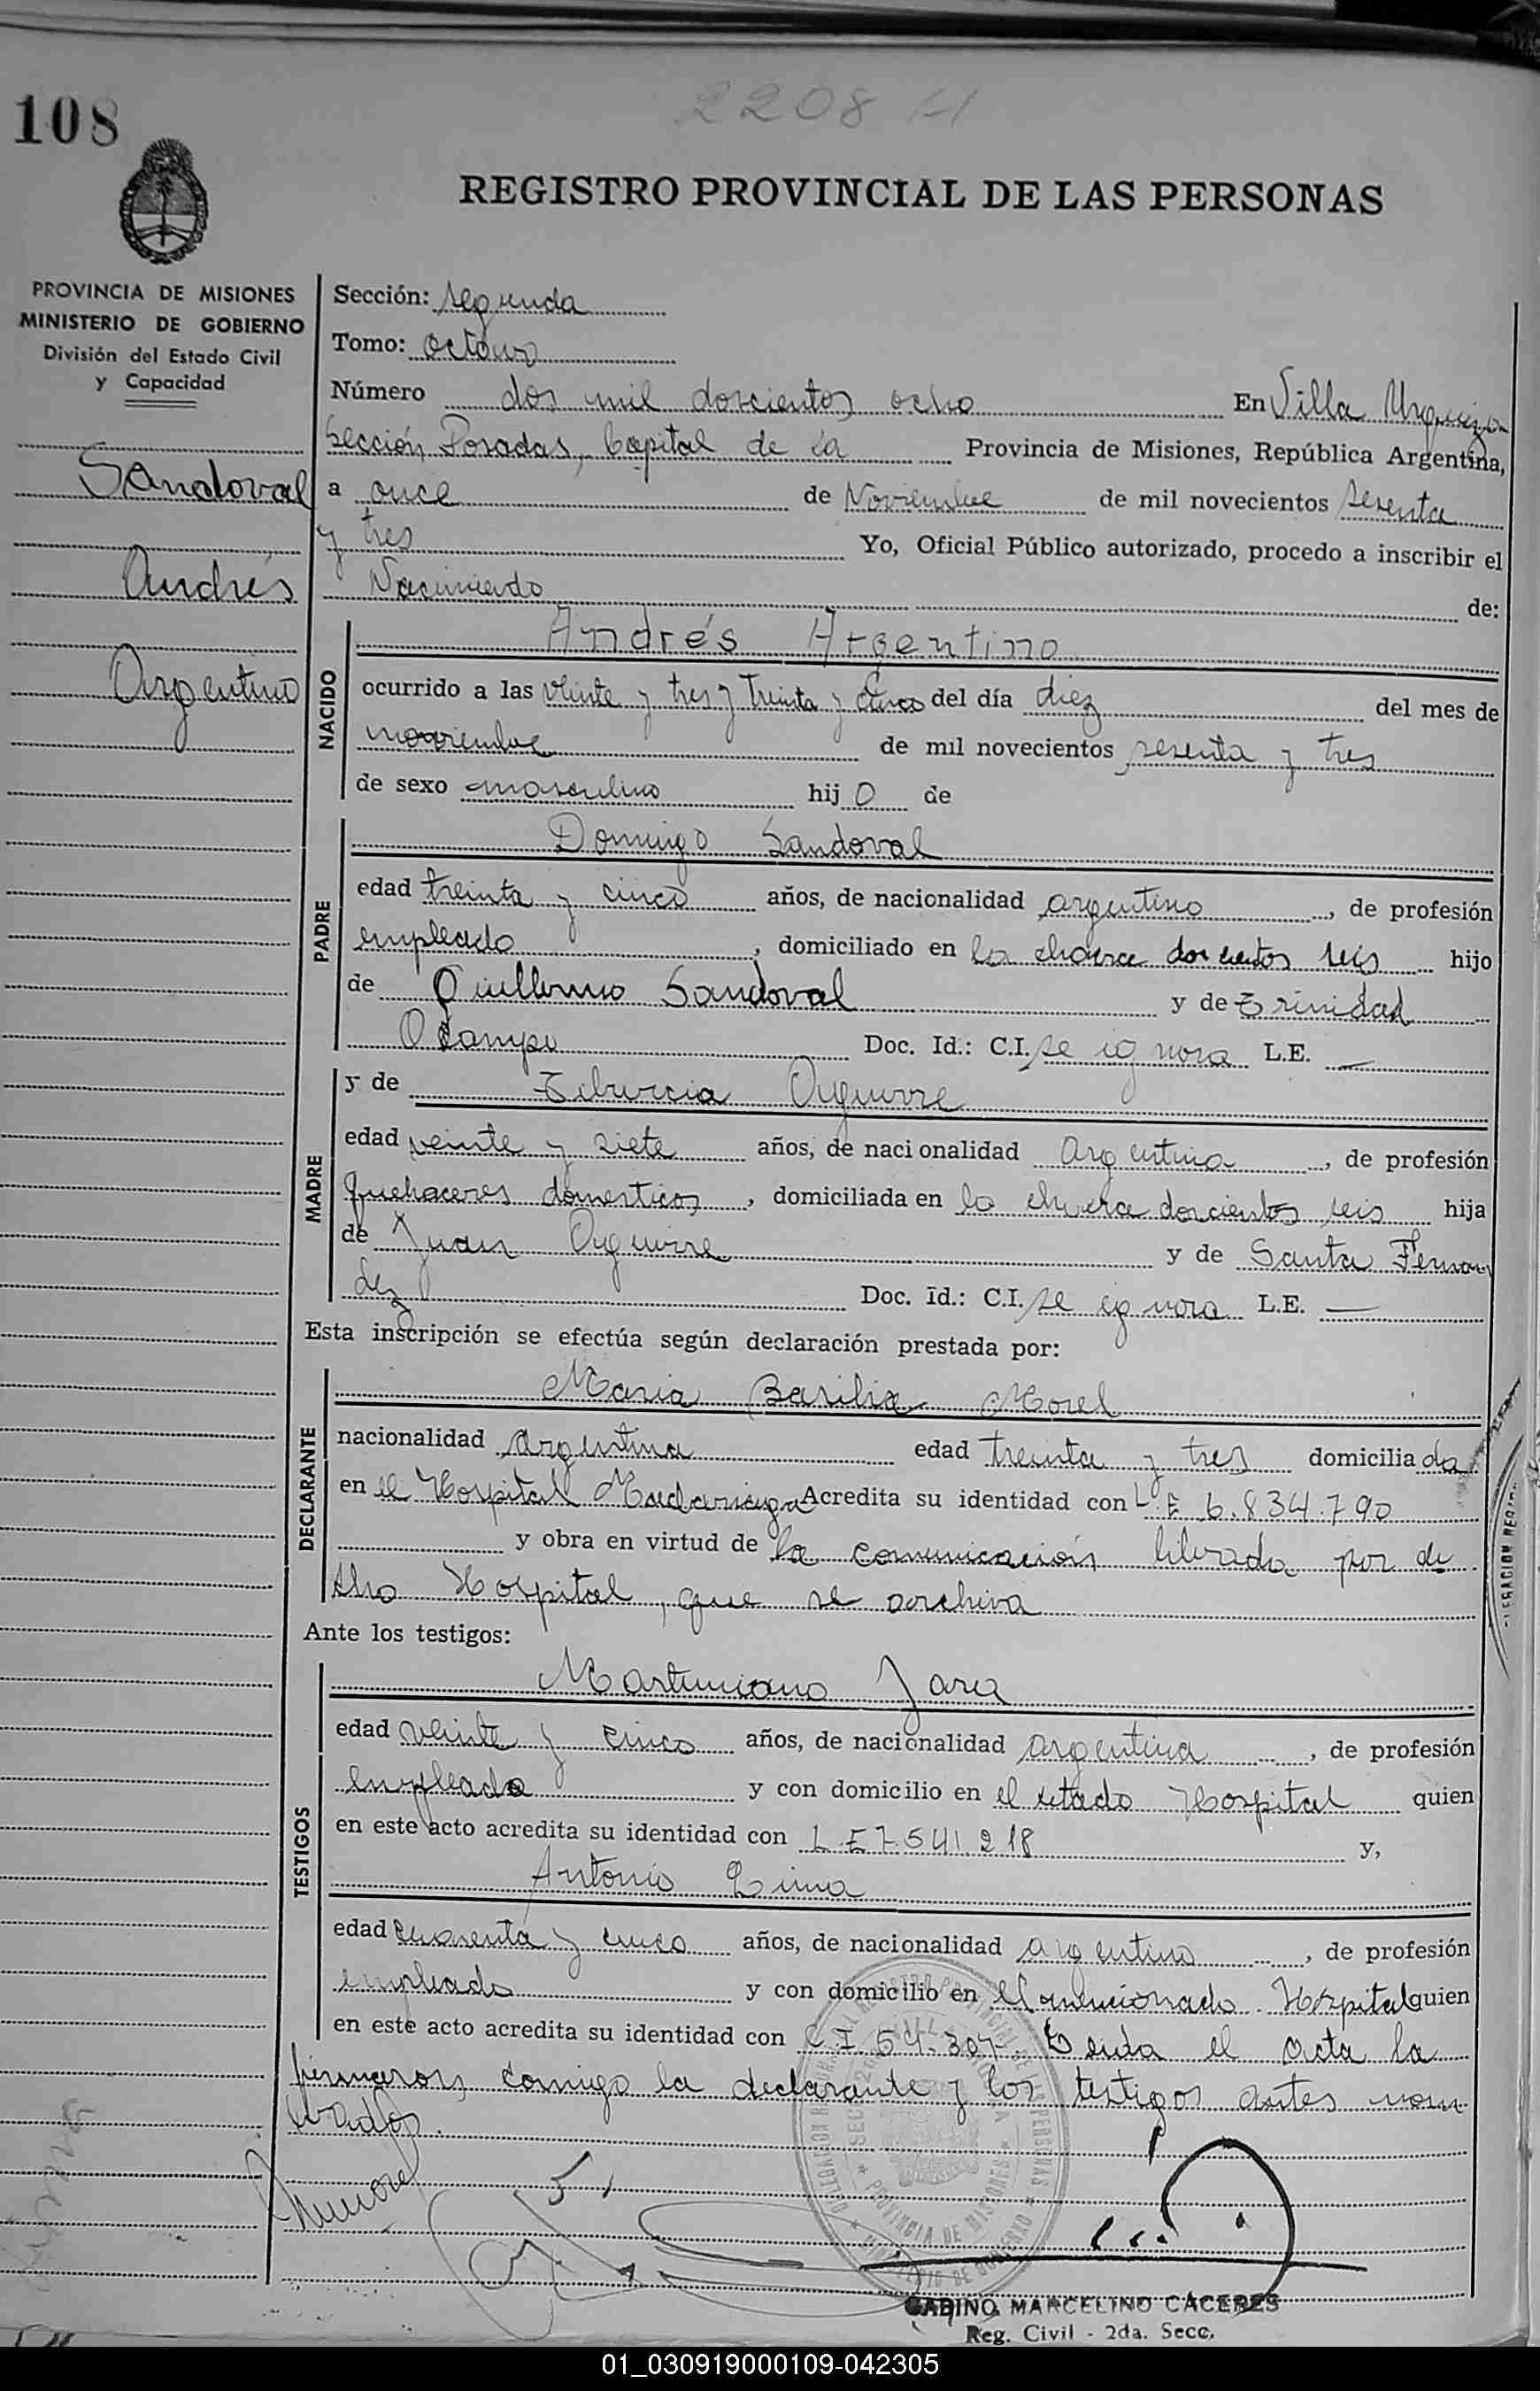 108
2208
REGISTRO PROVINCIAL DE LAS PERSONAS
PROVINCIA DE MISIONES
MINISTERIO DE GOBIERNO
División del Estado Civil
y Capacidad
Sandoval
Andrés
Argentino
Sección: segunda
Tomo: octavo
Número dos mil doscientos ocho En Villa Urquiza
Sección Posadas, Capital de la Provincia de Misiones, República Argentina,
a once de Noviembre de mil novecientos sesenta
y tres Yo, Oficial Público autorizado, procedo a inscribir el
Nacimiento de:
NACIDO
Andrés Argentino
ocurrido a las veinte y tres y treinta y cinco del día diez del mes de
noviembre de mil novecientos sesenta y tres
de sexo masculino hij o de
PADRE
Domingo Sandoval
edad treinta y cinco años, de nacionalidad argentino, de profesión
empleado, domiciliado en la chacra doscientos seis hijo
de Guillermo Sandoval y de Trinidad
Ocampo Doc. Id.: C.I. se ignora L.E. —
MADRE
y de Tiburcia Aguirre
edad veinte y siete años, de nacionalidad argentina, de profesión
quehaceres domesticos, domiciliada en la chacra doscientos seis hija
de Juan Aguirre y de Santa Fernan
dez Doc. Id.: C.I. se ignora L.E. —
Esta inscripción se efectúa según declaración prestada por:
DECLARANTE
Maria Basilia Morel
nacionalidad argentina edad treinta y tres domicilia da
en el Hospital Madariaga Acredita su identidad con L.E 6.834.790
y obra en virtud de la comunicación librada por di
cho Hospital, que se archiva
Ante los testigos:
TESTIGOS
Martiniano Jara
edad veinte y cinco años, de nacionalidad argentina, de profesión
empleado y con domicilio en el citado Hospital quien
en este acto acredita su identidad con L.E 7.541.218 y,
Antonio Lima
edad cuarenta y cinco años, de nacionalidad argentino, de profesión
empleado y con domicilio en el mencionado Hospital quien
en este acto acredita su identidad con C.I 54.307. Leida el acta la
firmaron, conmigo la declarante y los testigos antes nom
brados.
Mmorel
GABINO MARCELINO CACERES
Reg. Civil - 2da. Secc.
01_030919000109-042305